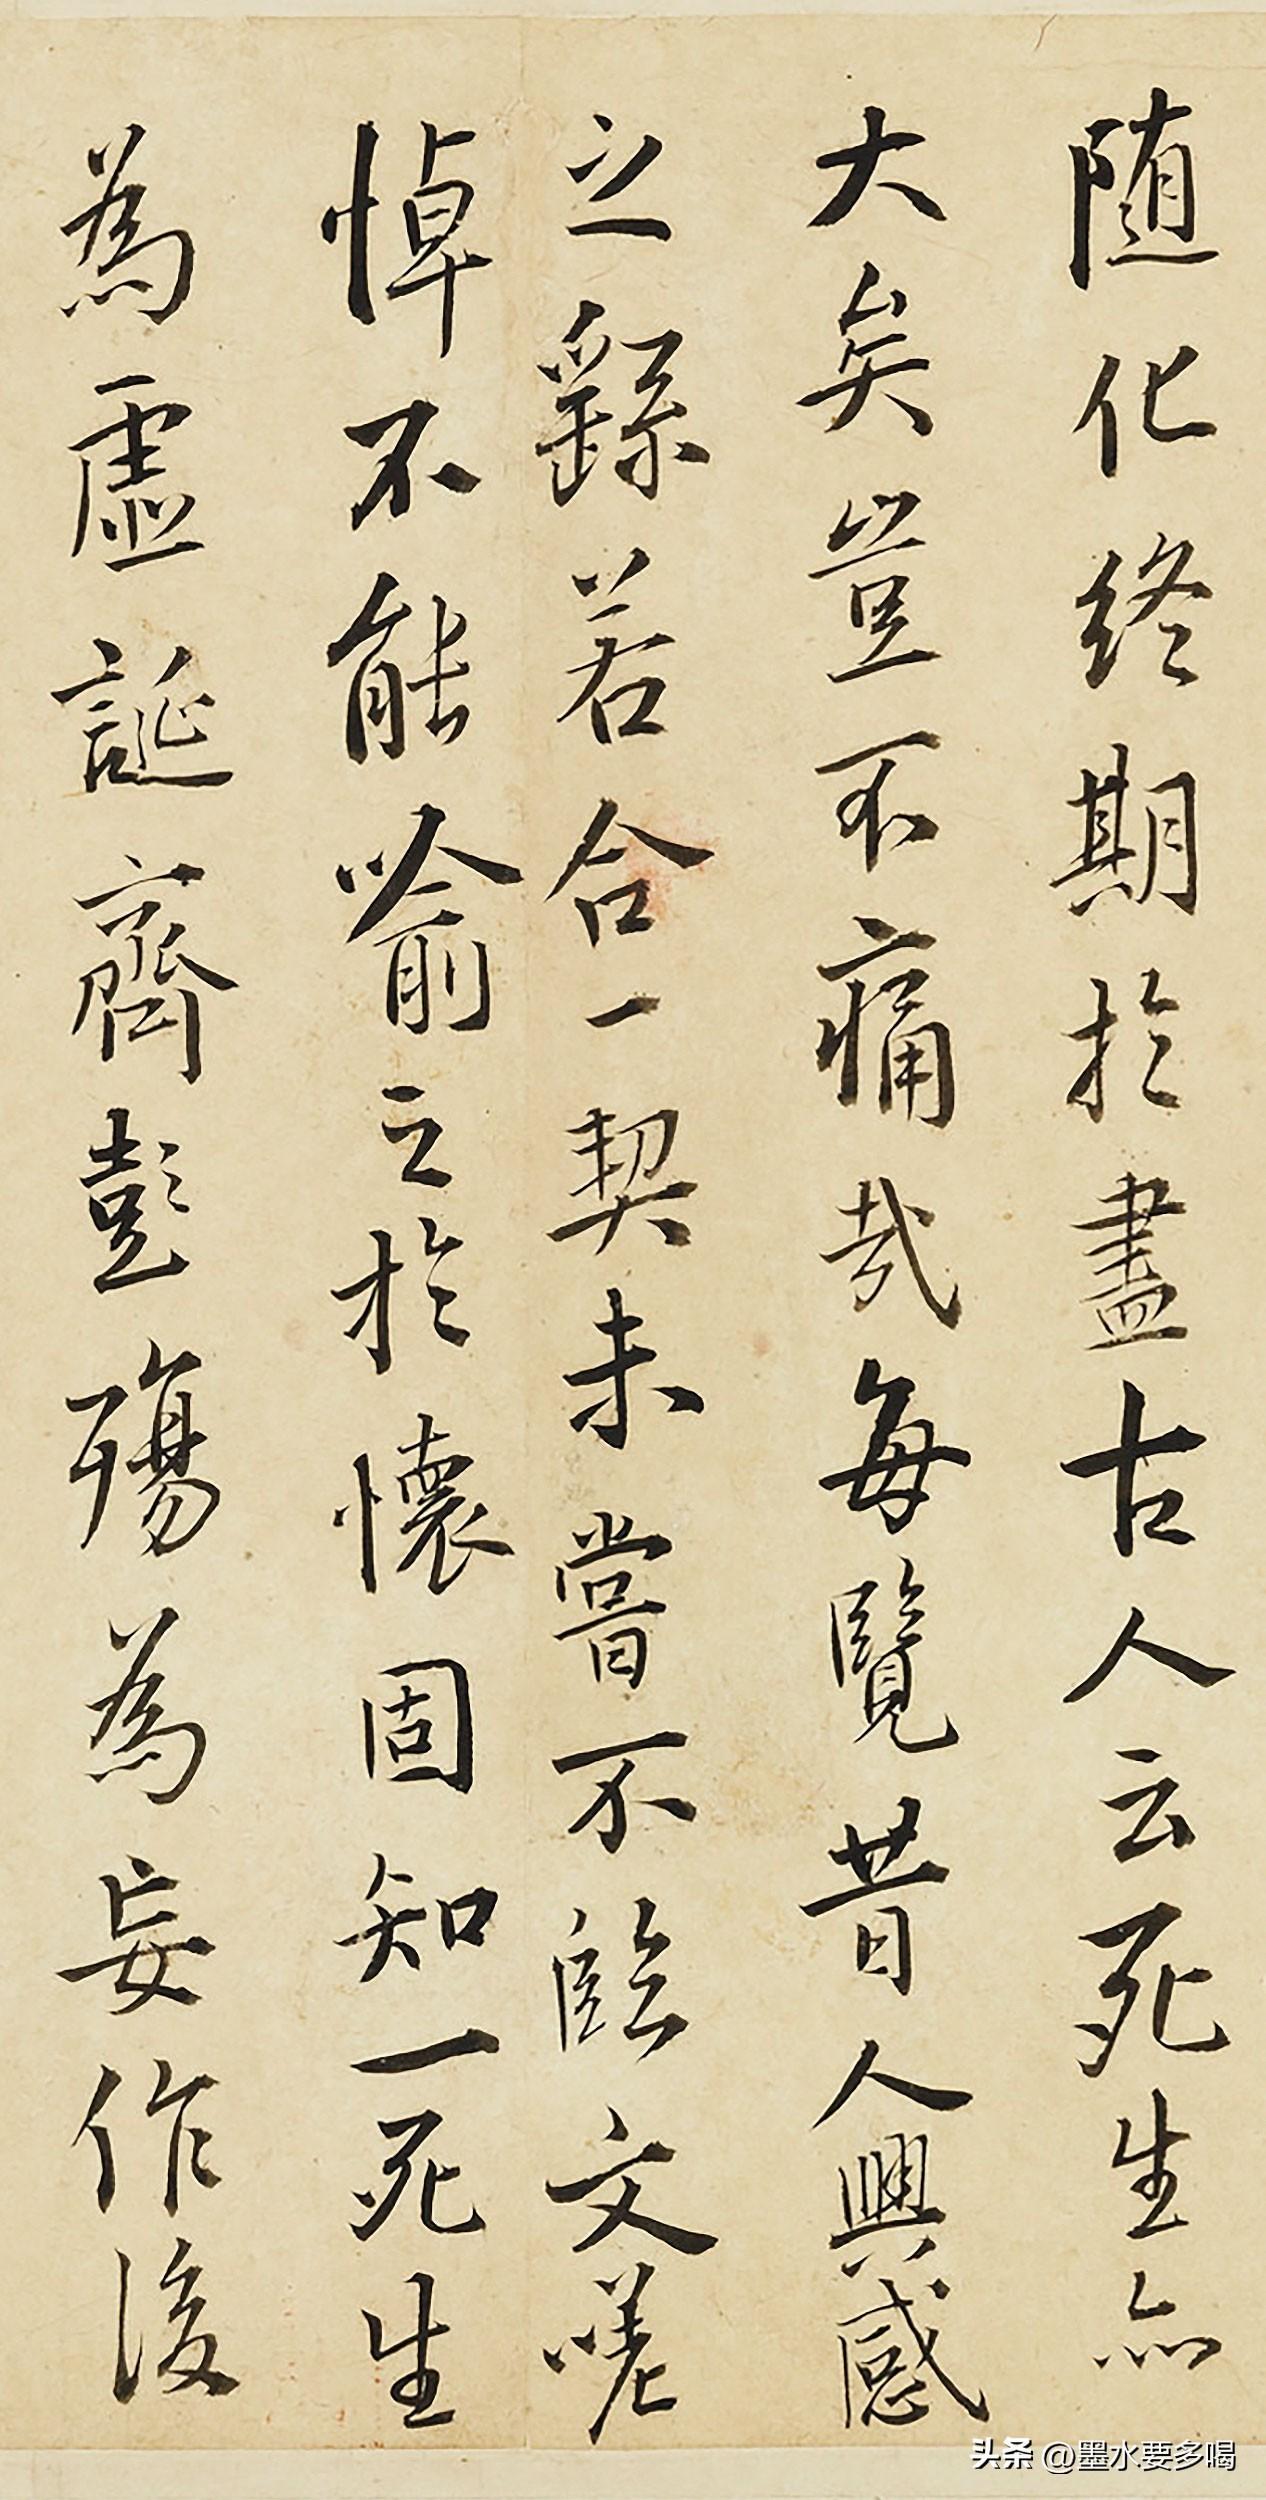 随化終期於盡古人云死生亦
大矣豈不痛哉每覽昔人興感
之繇若合一契未嘗不臨文嗟
悼不能喻之於懷固知一死生
為虛誕齊彭殤為妄作後
头条 @墨水要多喝